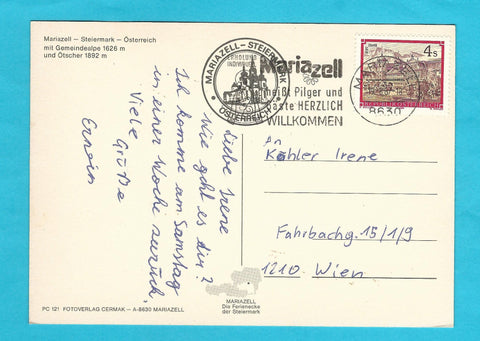 Mariazell – Steiermark – Österreich
mit Gemeindealpe 1626 m
und Ötscher 1892 m
MARIAZELL – STEIERMARK
ERHOLUNG
INDIVIDUELL
ÖSTERREICH
Mariazell
heißt Pilger und
Gäste HERZLICH
WILLKOMMEN
4 S
REPUBLIK ÖSTERREICH
8630
Liebe Irene
Wie geht es dir?
Ich komme am Samstag
in einer Woche zurück,
Viele
Grüße
Erwin
An
Köhler Irene
Fahrbachg. 15/1/9
1210 Wien
MARIAZELL
Die Ferienecke
der Steiermark
PC 121 FOTOVERLAG CERMAK – A-8630 MARIAZELL